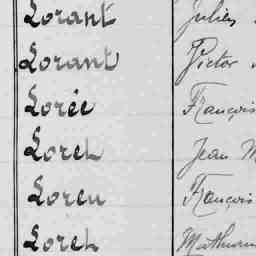 Lorant Julien
Lorant Victor
Lorée François
Loreh Jean M
Loreu François
Loreh Mathurin